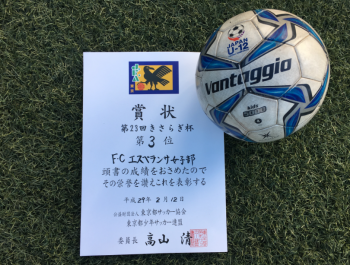 賞状
第23回きさらぎ杯
第3位
FCエスペランサ女子部
頭書の成績をおさめたので
その栄誉を讃えこれを表彰する
平成29年2月12日
公益財団法人 東京都サッカー協会
東京都少年サッカー連盟
委員長 高山 清
JAPAN
U-12
Vantaggio